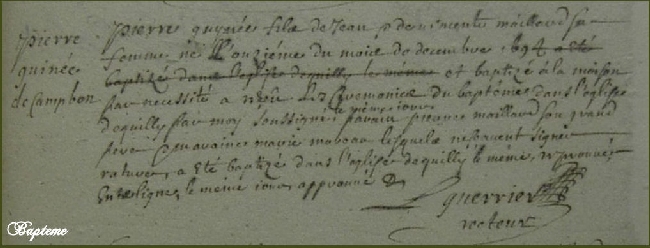 pierre
quinée
de Campbon
pierre quynée fils de Jean & de mente maillard sa
femme né l'onziéme du mois de decembre 1694 a eté
baptizé dans l'eglise dequilly le méme et baptizé à la maison
par necessité a receu les ceremonies du baptéme dans l'eglise
le méme iour
dequilly par moy soussigné parain pierre maillard son grand
pere & maraine marie lesquels ne scavent signer
ratures, a eté baptizé dans l'église dequilly le méme, reprouvés
Enteligne, le meme iour, approuvé &
guerrier
recteur
Bapteme